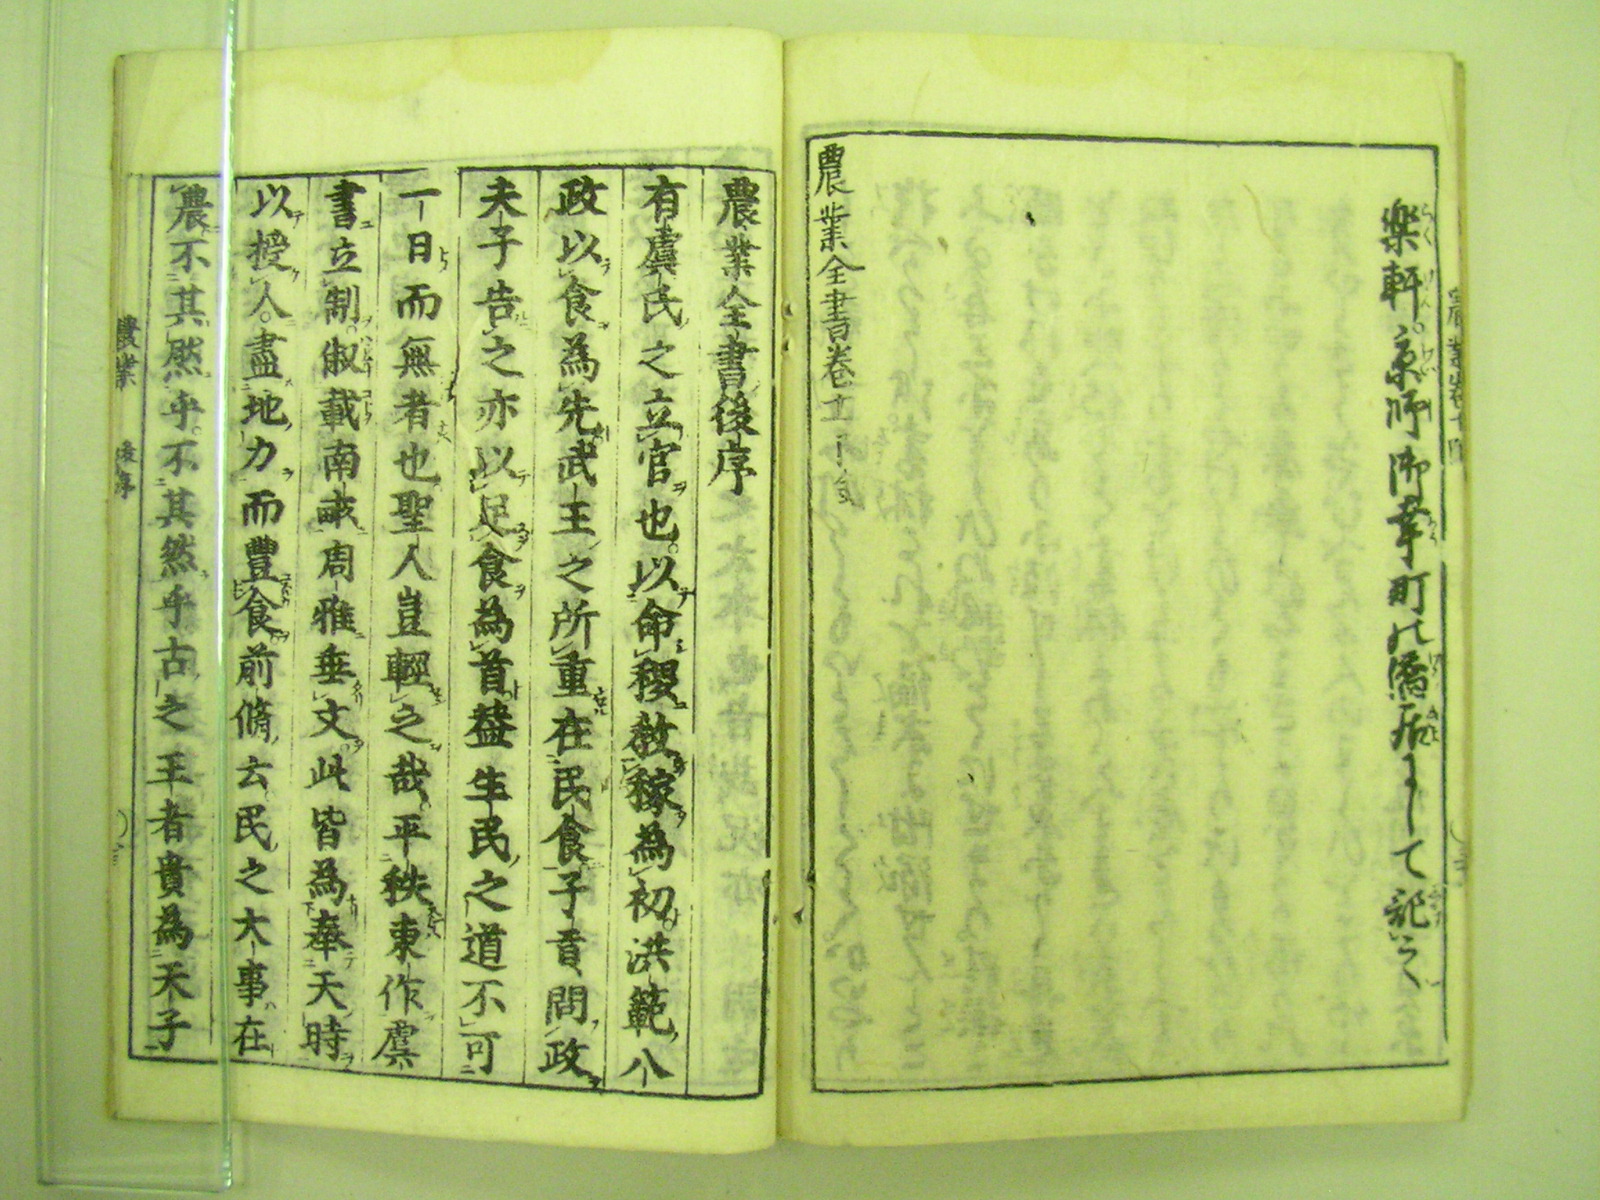 楽軒京師御幸町の僑居にして記之
農業全書巻十一
農業全書後序
有虞氏之立官也以命稷教稼為初洪範八
政以食為先武王之所重在民食子貢問政
夫子告之亦以足食為首蓋生民之道不可
一日而無者也聖人豈輕之哉平秩東作虞
書立制俶載南畝周雅垂文此皆為奉天時
以授人盡地力而豐食前脩云民之大事在
農不其然乎不其然乎古之王者貴為天子
農業 後序